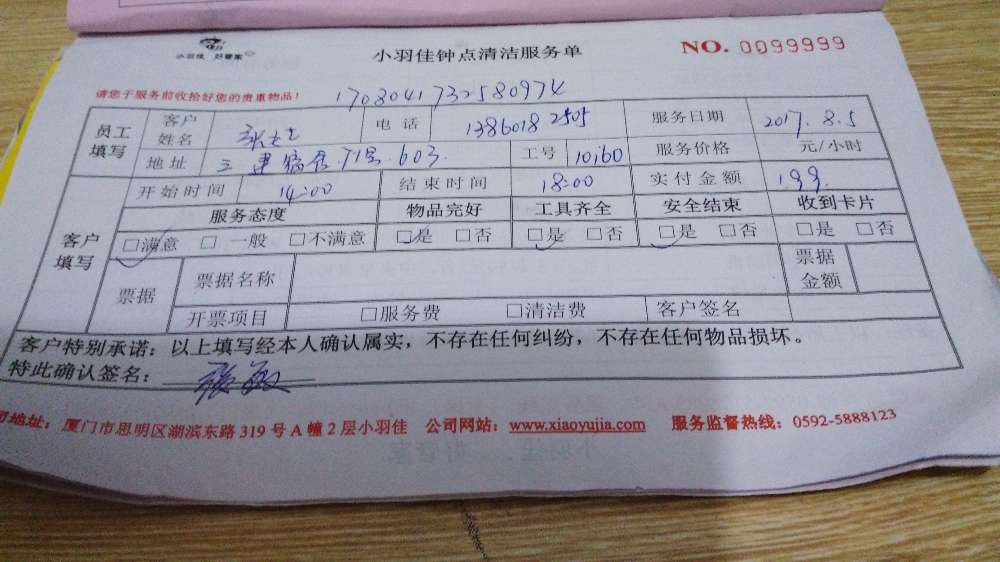 小羽佳 好管家
小羽佳钟点清洁服务单
NO. 0099999
请您于服务前收拾好您的贵重物品!
1708041732580974
员工填写 客户姓名 张女士 电话 13860182505 服务日期 2017.8.5
地址 三建宿舍71号603. 工号 10160 服务价格 元/小时
开始时间 14:00 结束时间 18:00 实付金额 199.
客户填写 服务态度 物品完好 工具齐全 安全结束 收到卡片
□满意 □一般 □不满意 □是 □否 □是 □否 □是 □否 □是 □否
票据 票据名称 票据金额
开票项目 □服务费 □清洁费 客户签名
客户特别承诺:以上填写经本人确认属实,不存在任何纠纷,不存在任何物品损坏。
特此确认签名:张
司地址:厦门市思明区湖滨东路319号A幢2层小羽佳 公司网站:www.xiaoyujia.com 服务监督热线:0592-5888123